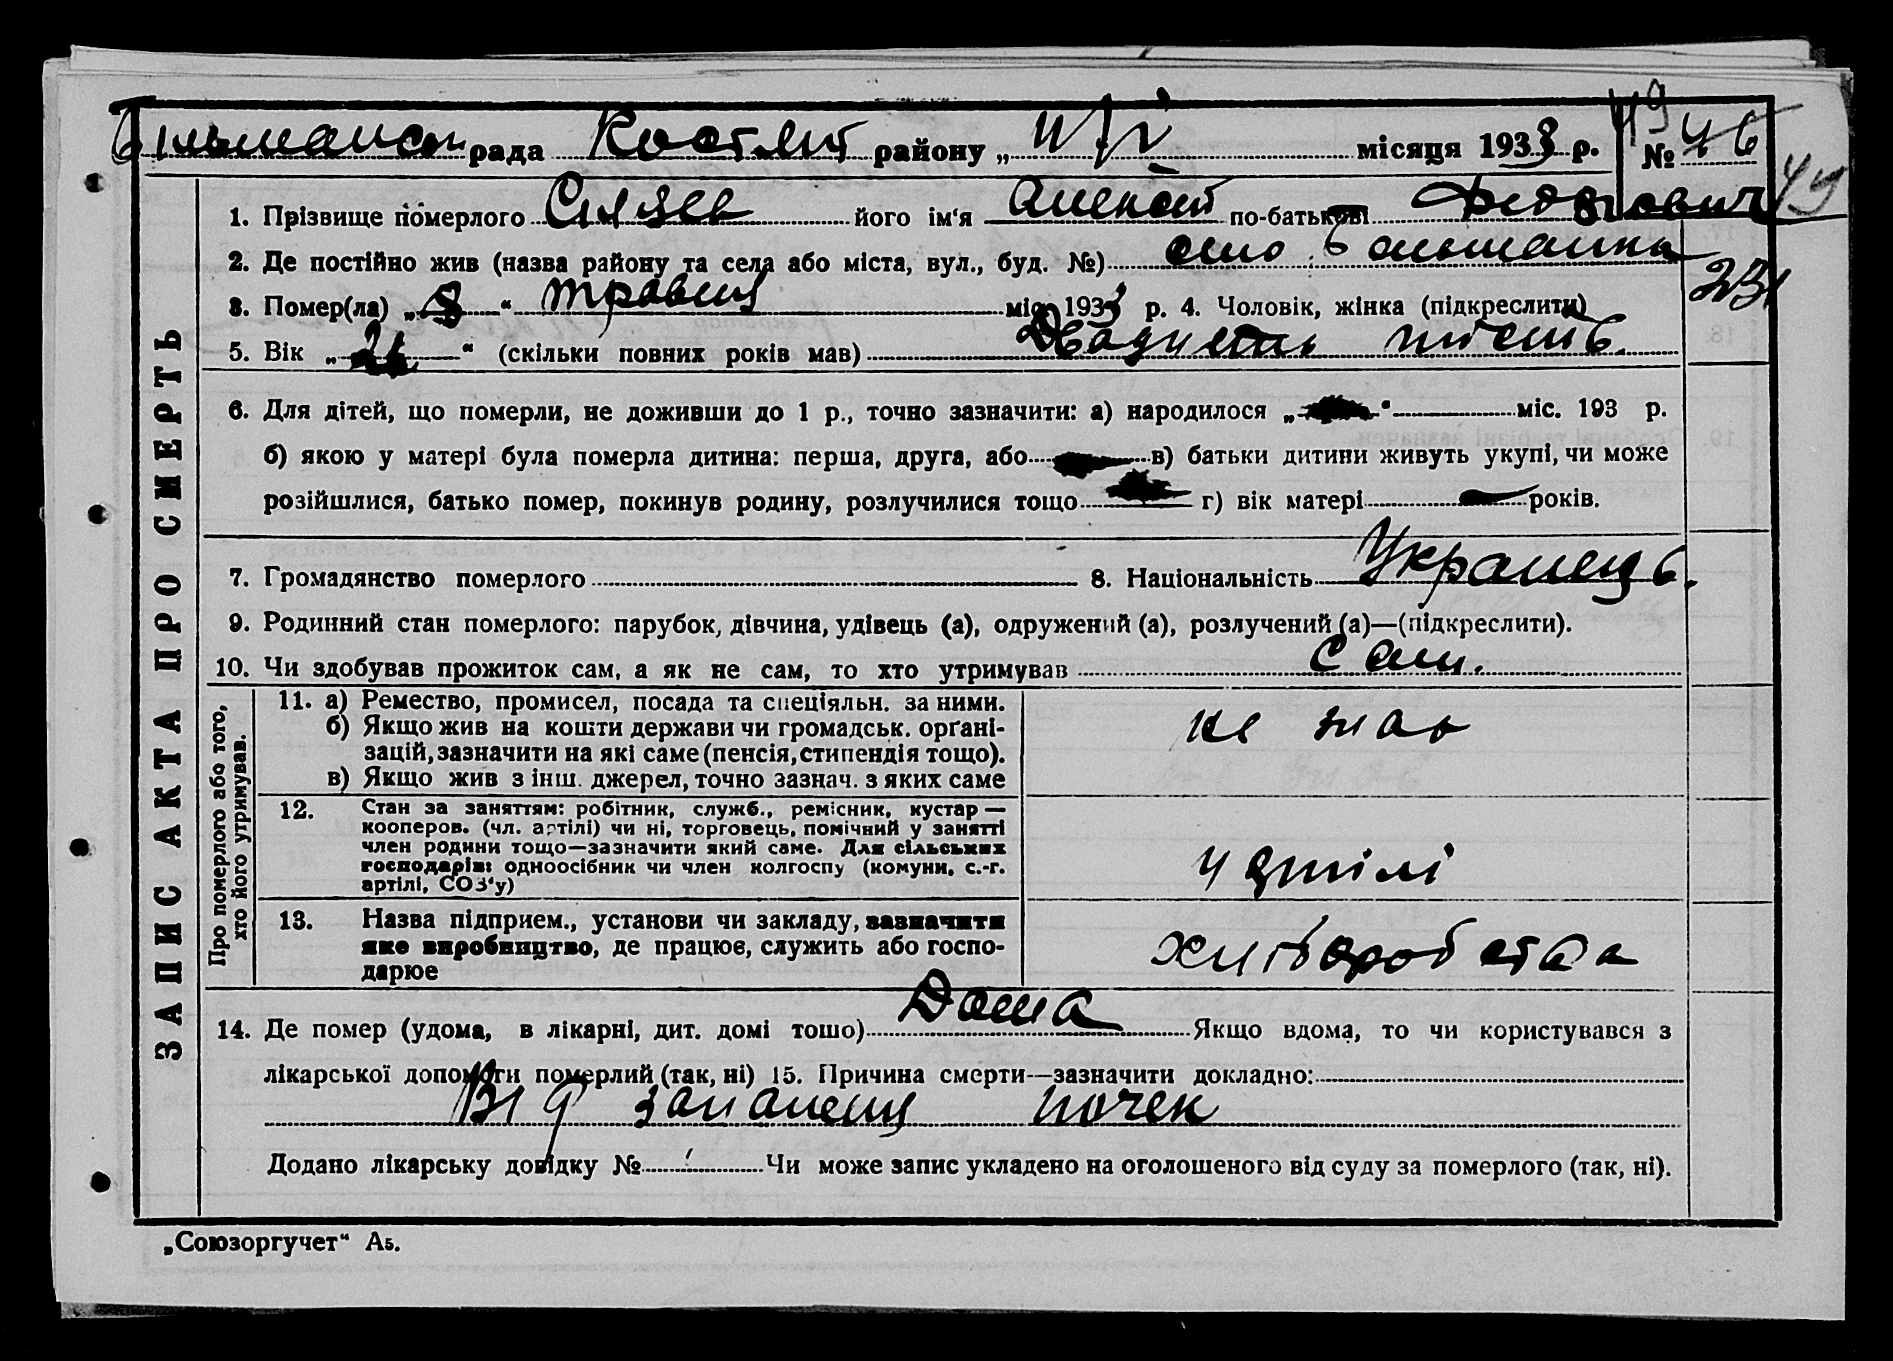 рада Костянт району „ місяця 1933 р. № 46
49
1. Прізвище померлого його ім'я Алексей по-батькові Федорович
49
2. Де постійно жив (назва району та села або міста, вул., буд. №) село Більманка
231
3. Помер(ла) „8“ травня міс. 1933 р. 4. Чоловік, жінка (підкреслити)
5. Вік „ “ (скільки повних років мав) Двадцять
6. Для дітей, що померли, не доживши до 1 р., точно зазначити: а) народилося „ “ міс. 193 р.
б) якою у матері була померла дитина: перша, друга, або в) батьки дитини живуть укупі, чи може
розійшлися, батько помер, покинув родину, розлучилися тощо г) вік матері років.
7. Громадянство померлого 8. Національність Українець.
9. Родинний стан померлого: парубок, дівчина, удівець (а), одружений (а), розлучений (а)—(підкреслити).
10. Чи здобував прожиток сам, а як не сам, то хто утримував Сам.
ЗАПИС АКТА ПРО СМЕРТЬ
Про померлого або того,
хто його утримував.
11. а) Ремество, промисел, посада та спеціяльн. за ними.
б) Якщо жив на кошти держави чи громадськ. орґані-
зацій, зазначити на які саме (пенсія, стипендія тощо).
в) Якщо жив з інш. джерел, точно зазнач. з яких саме
не мав
12. Стан за заняттям: робітник, служб., ремісник, кустар —
кооперов. (чл. артілі) чи ні, торговець, помічний у занятті
член родини тощо—зазначити який саме. Для сільських
господарів: одноосібник чи член колгоспу (комуни, с.-г.
артілі, СОЗ'у)
у артілі
13. Назва підприєм., установи чи закладу, зазначити
яке виробництво, де працює, служить або госпо-
дарює
хліборобства
14. Де помер (удома, в лікарні, дит. домі тошо) Дома Якщо вдома, то чи користувався з
лікарської допомоги померлий (так, ні) 15. Причина смерти—зазначити докладно:
Від запаления почек
Додано лікарську довідку № Чи може запис укладено на оголошеного від суду за померлого (так, ні).
„Союзоргучет“ А5.